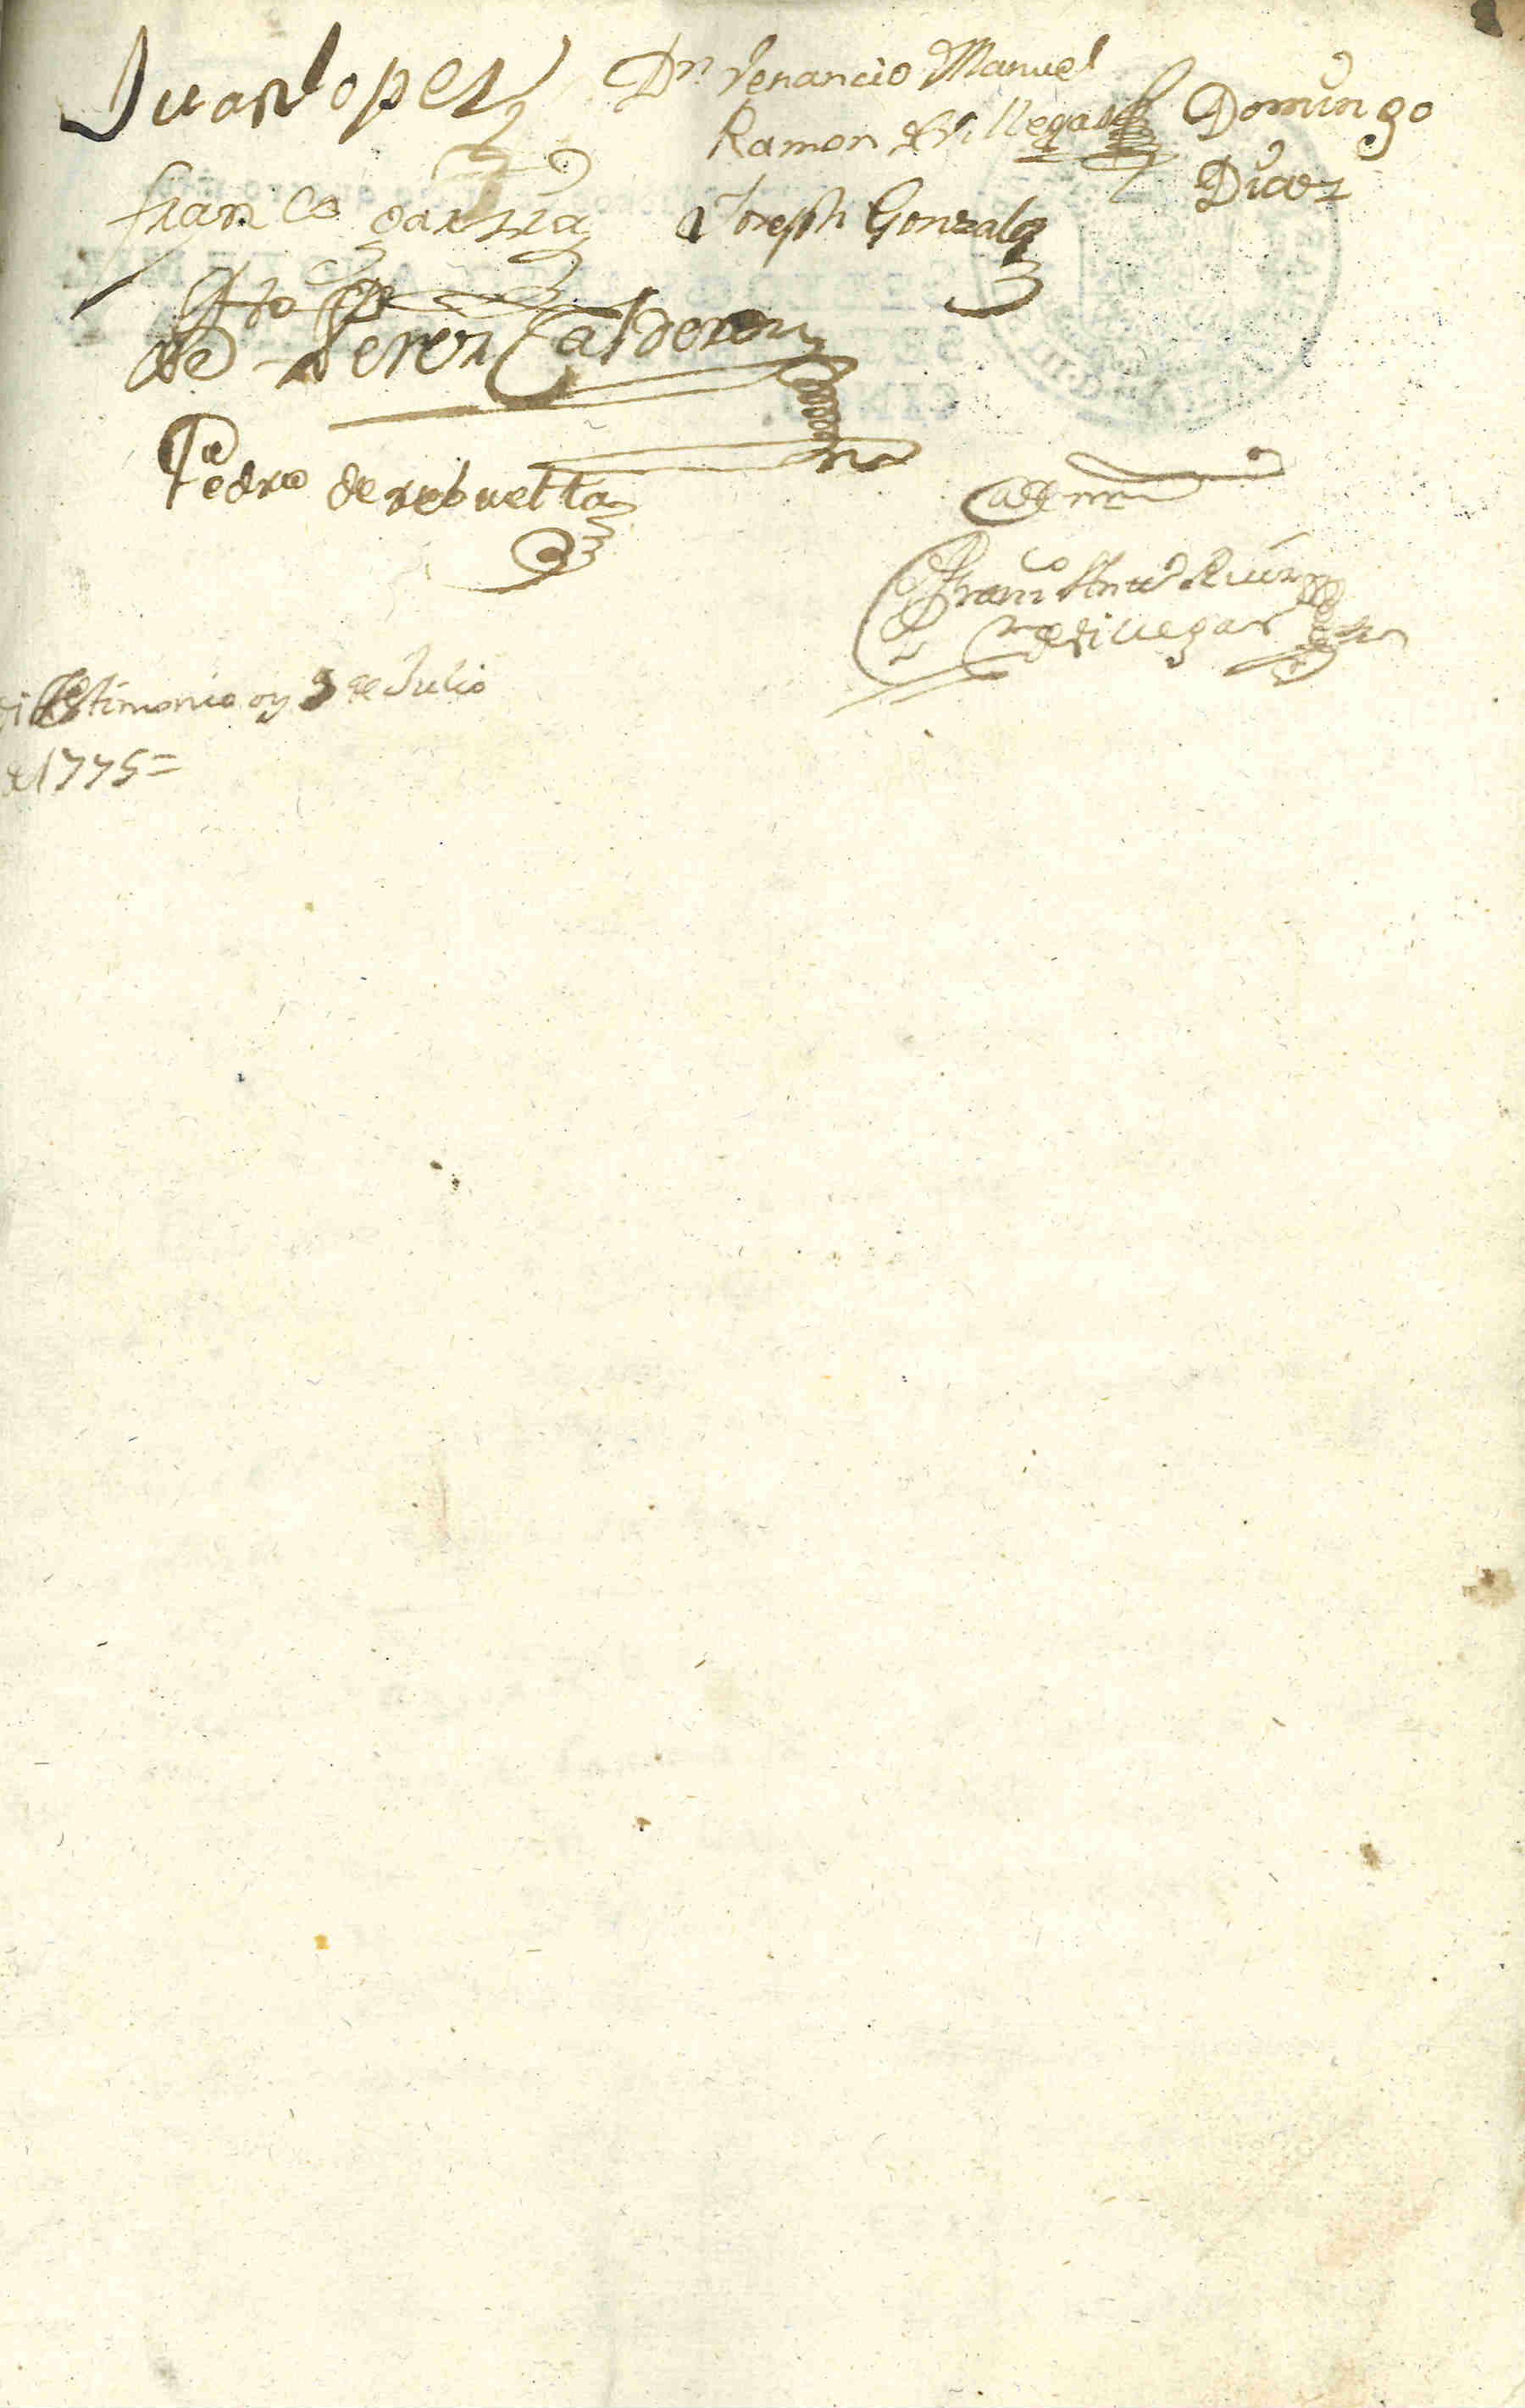 Juan lopez
Dn Venancio Manuel
Ramon de Villegas
Domingo
Diaz
fran co garzia
Joseph Gonzalez
de Perez Calderon
Pedro de rebuelta
Ante mi
Franco Antto Ruiz
de Villegas
di testimonio oy 3 de Julio
de 1775=